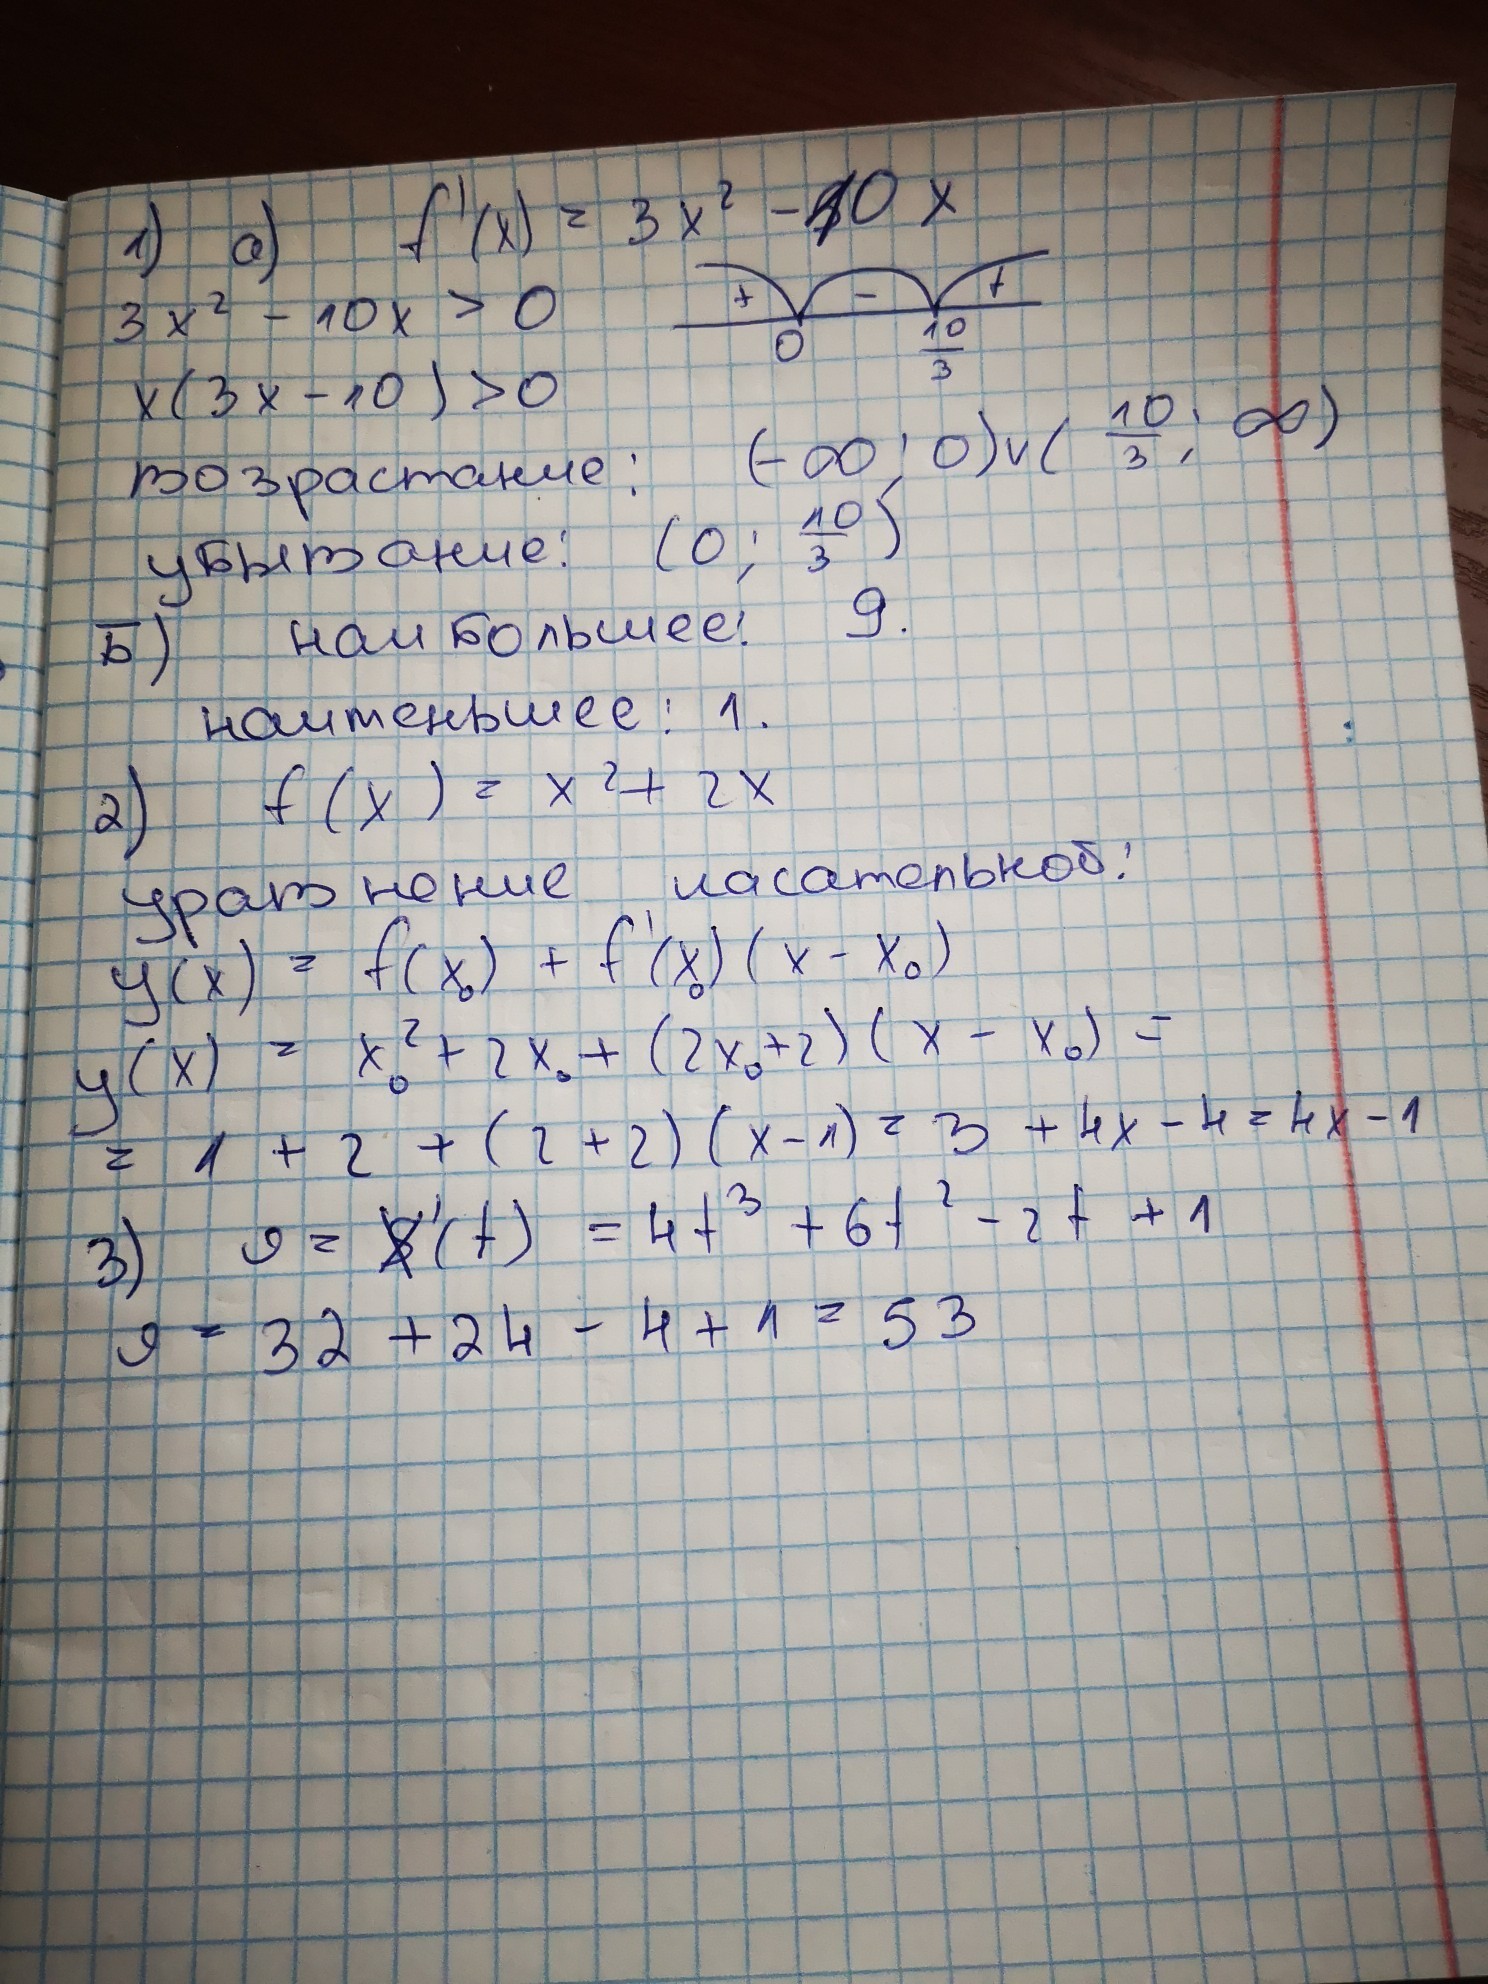 1) а) f'(x) = 3x² - 10x
3x² - 10x > 0
+ - +
0 10/3
x(3x - 10) > 0
возрастание: (-∞; 0)∪(10/3; ∞)
убывание: (0; 10/3)
Б) наибольшее: 9.
наименьшее: 1.
2) f(x) = x² + 2x
уравнение касательной:
y(x) = f(x₀) + f'(x₀)(x - x₀)
y(x) = x₀² + 2x₀ + (2x₀+2)(x - x₀) =
= 1 + 2 + (2+2)(x-1) = 3 + 4x - 4 = 4x - 1
3) v = '(t) = 4t³ + 6t² - 2t + 1
v = 32 + 24 - 4 + 1 = 53